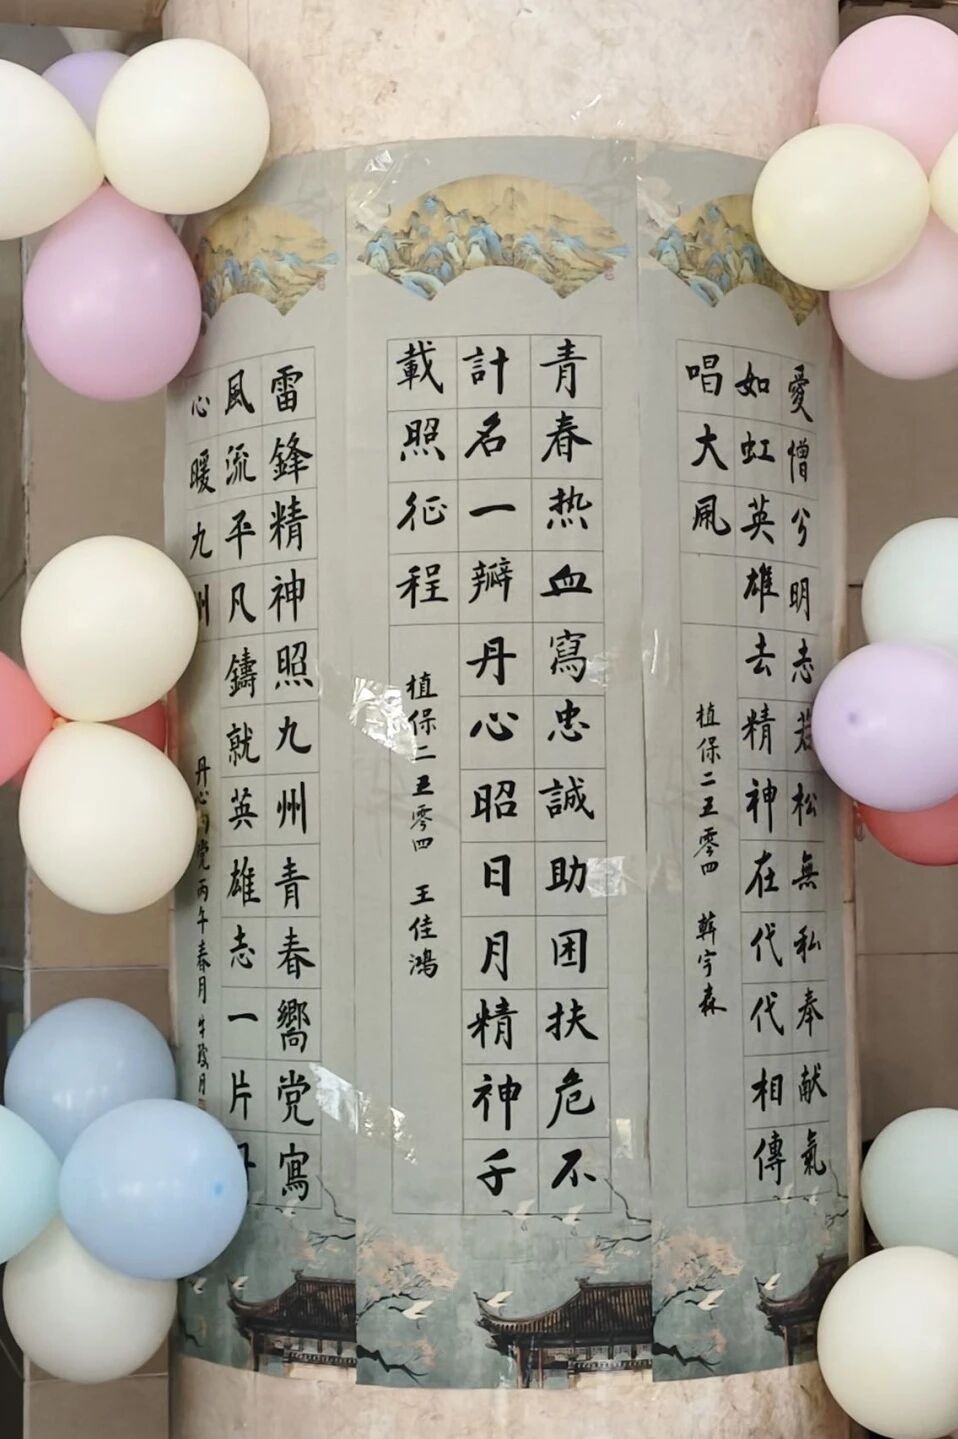 愛憎分明志若松無私奉献氣
如虹英雄去精神在代代相傳
唱大風
植保二五零四 韓宇森
青春热血寫忠誠助困扶危不
計名一瓣丹心昭日月精神千
載照征程
植保二五零四 王佳鴻
雷鋒精神照九州青春嚮党寫
風流平凡鑄就英雄志一片丹
心暖九州
丹心向党丙午春月 牛 月